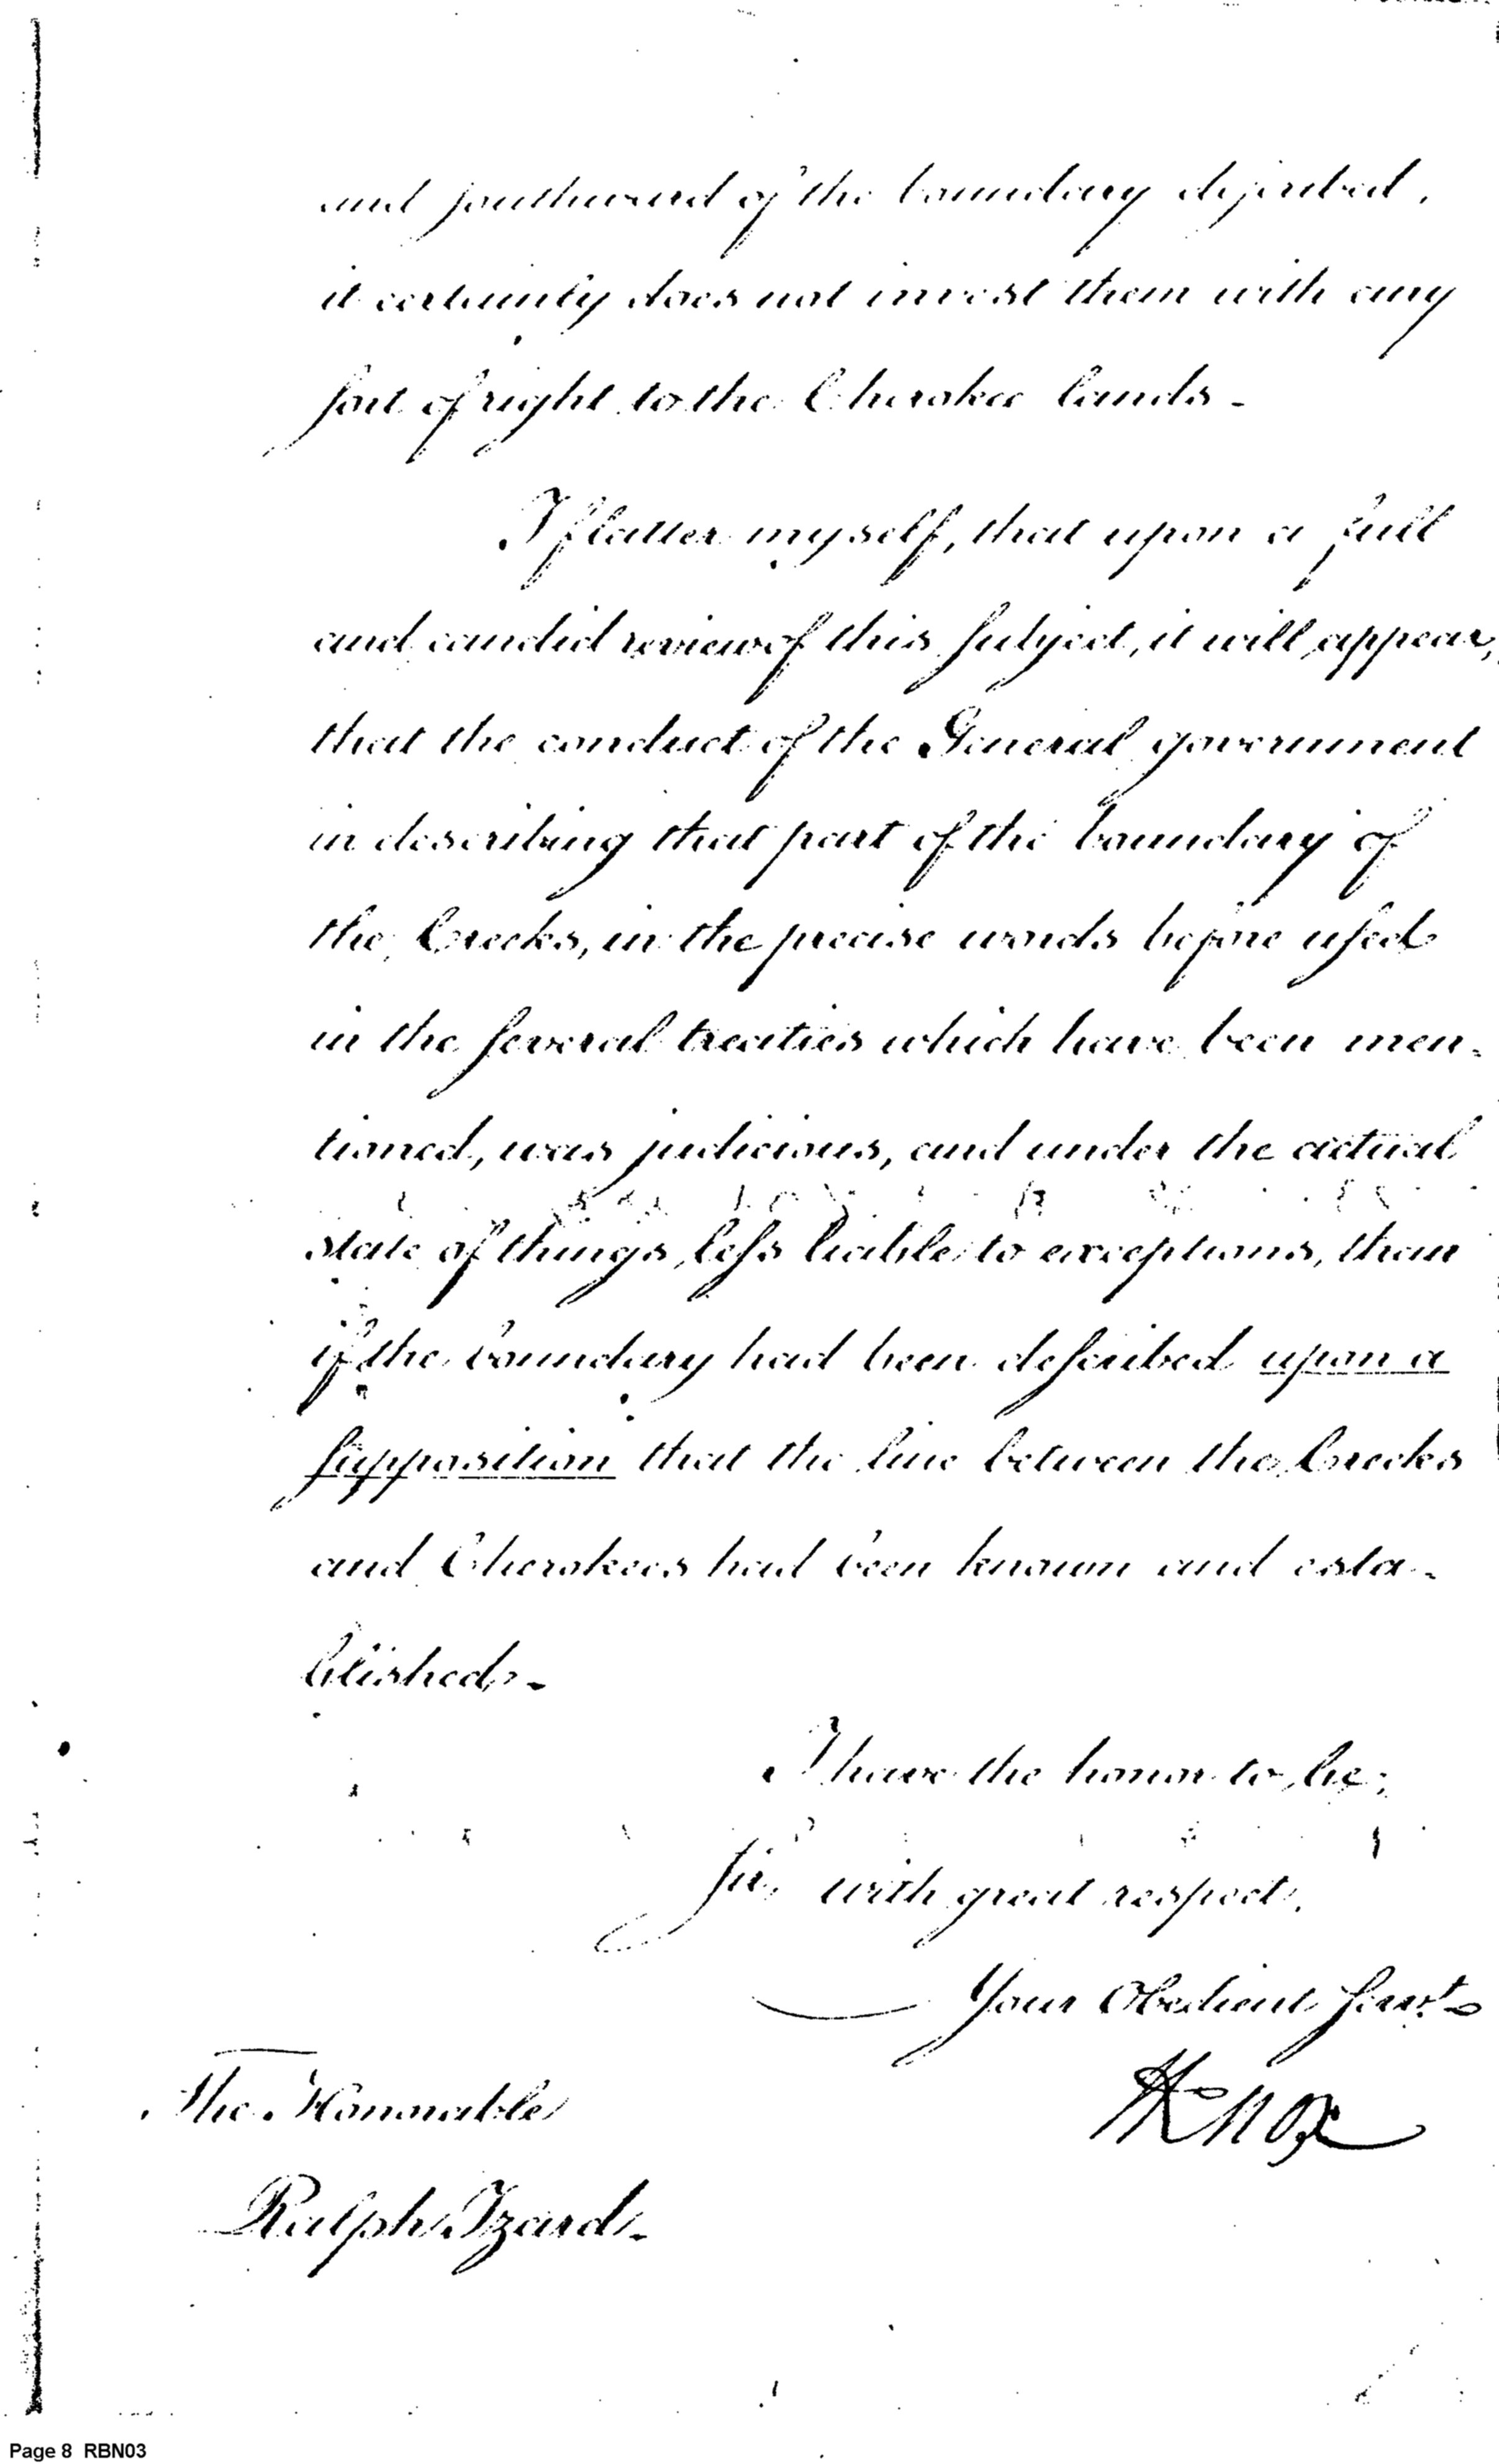 and southward of the boundary described,
it certainly does not invest them with any
sort of right to the Cherokee lands -
I flatter myself, that upon a full
and candid review of this subject, it will appear,
that the conduct of the General government
in describing that part of the boundary of
the Creeks, in the precise words before used
in the several treaties which have been men-
tioned, was judicious, and under the actual
state of things, less liable to exceptions, than
if the boundary had been described upon a
supposition that the line between the Creeks
and Cherokees had been known and esta-
blished -
I have the honor to be,
Sir, with great respect,
Your Obedient Servt
HKnox
The Honorable
Ralph Izard -
Page 8 RBN03